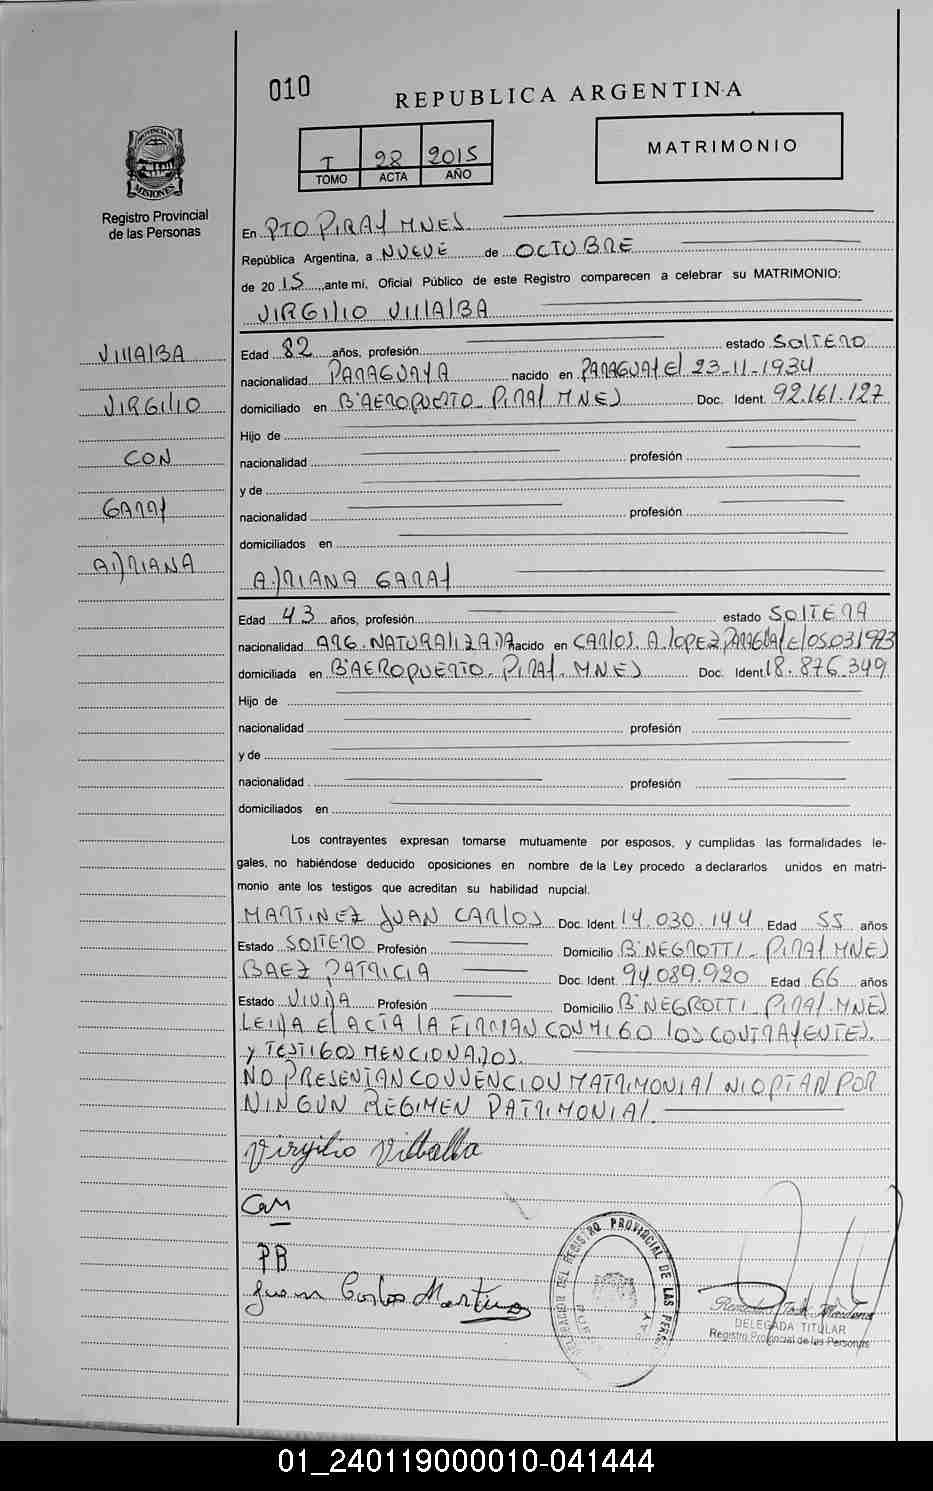 010
REPUBLICA ARGENTINA
I 28 2015
TOMO ACTA AÑO
MATRIMONIO
PROVINCIA DE MISIONES
Registro Provincial
de las Personas
En PTO PIRAY MNES
República Argentina, a NUEVE de OCTUBRE
de 2015, ante mí, Oficial Público de este Registro comparecen a celebrar su MATRIMONIO:
VIRGILIO VILLALBA
VILLALBA
VIRGILIO
CON
GARAY
ADRIANA
Edad 82 años, profesión estado SOLTERO
nacionalidad PARAGUAYA nacido en PARAGUAY El 23-11-1934
domiciliado en Bº AEROPUERTO - PIRAY MNES Doc. Ident. 92.161.127
Hijo de
nacionalidad profesión
y de
nacionalidad profesión
domiciliados en
ADRIANA GARAY
Edad 43 años, profesión estado SOLTERA
nacionalidad ARG. NATURALIZADA nacido en CARLOS A. LOPEZ PARAGUAY El 05.03.1973
domiciliada en Bº AEROPUERTO. PIRAY. MNES Doc. Ident. 18.876.349
Hijo de
nacionalidad profesión
y de
nacionalidad profesión
domiciliados en
Los contrayentes expresan tomarse mutuamente por esposos, y cumplidas las formalidades le-
gales, no habiéndose deducido oposiciones en nombre de la Ley procedo a declararlos unidos en matri-
monio ante los testigos que acreditan su habilidad nupcial.
MARTINEZ JUAN CARLOS Doc. Ident. 14.030.144 Edad 55 años
Estado SOLTERO Profesión Domicilio Bº NEGROTTI - PIRAY MNES
BAEZ PATRICIA Doc. Ident. 94.089.920 Edad 66 años
Estado VIUDA Profesión Domicilio Bº NEGROTTI - PIRAY. MNES
LEIDA El ACTA LA FIRMAN CONMIGO LOS CONTRAYENTES.
Y TESTIGOS MENCIONADOS.
NO PRESENTAN CONVENCION MATRIMONIAL NI OPTAN POR
NINGUN REGIMEN PATRIMONIAL.
Virgilio Villalba
PB
Juan Carlos Martinez
DEL REGISTRO PROVINCIAL DE LAS PERS
DELEGADA TITULAR
Registro Provincial de las Personas
01_240119000010-041444